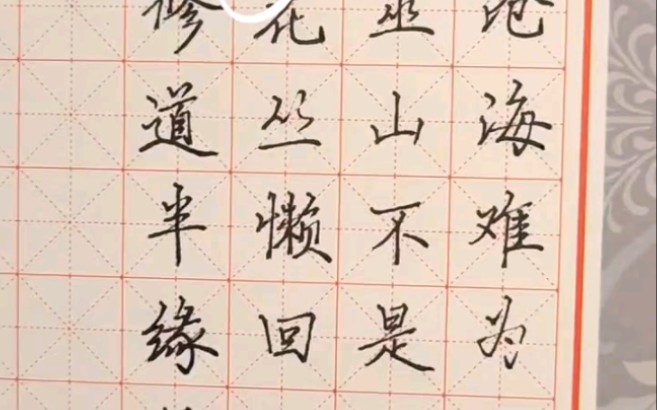 沧海难为
巫山不是
花丛懒回
修道半缘